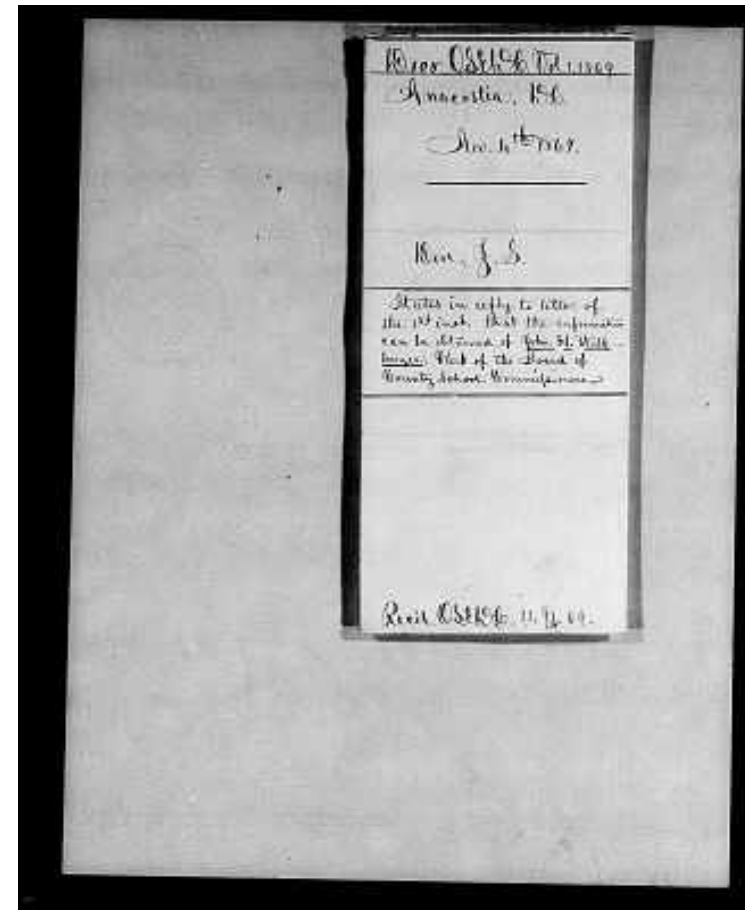 Vol 1, 1869
Anacostia, D.C.
Nov. 4th 1869.
J. S.
States in reply to letter of
the 1st inst. that the information
can be obtained of John H. Wilt-
berger Clerk of the Board of
County School Commissioners
69.